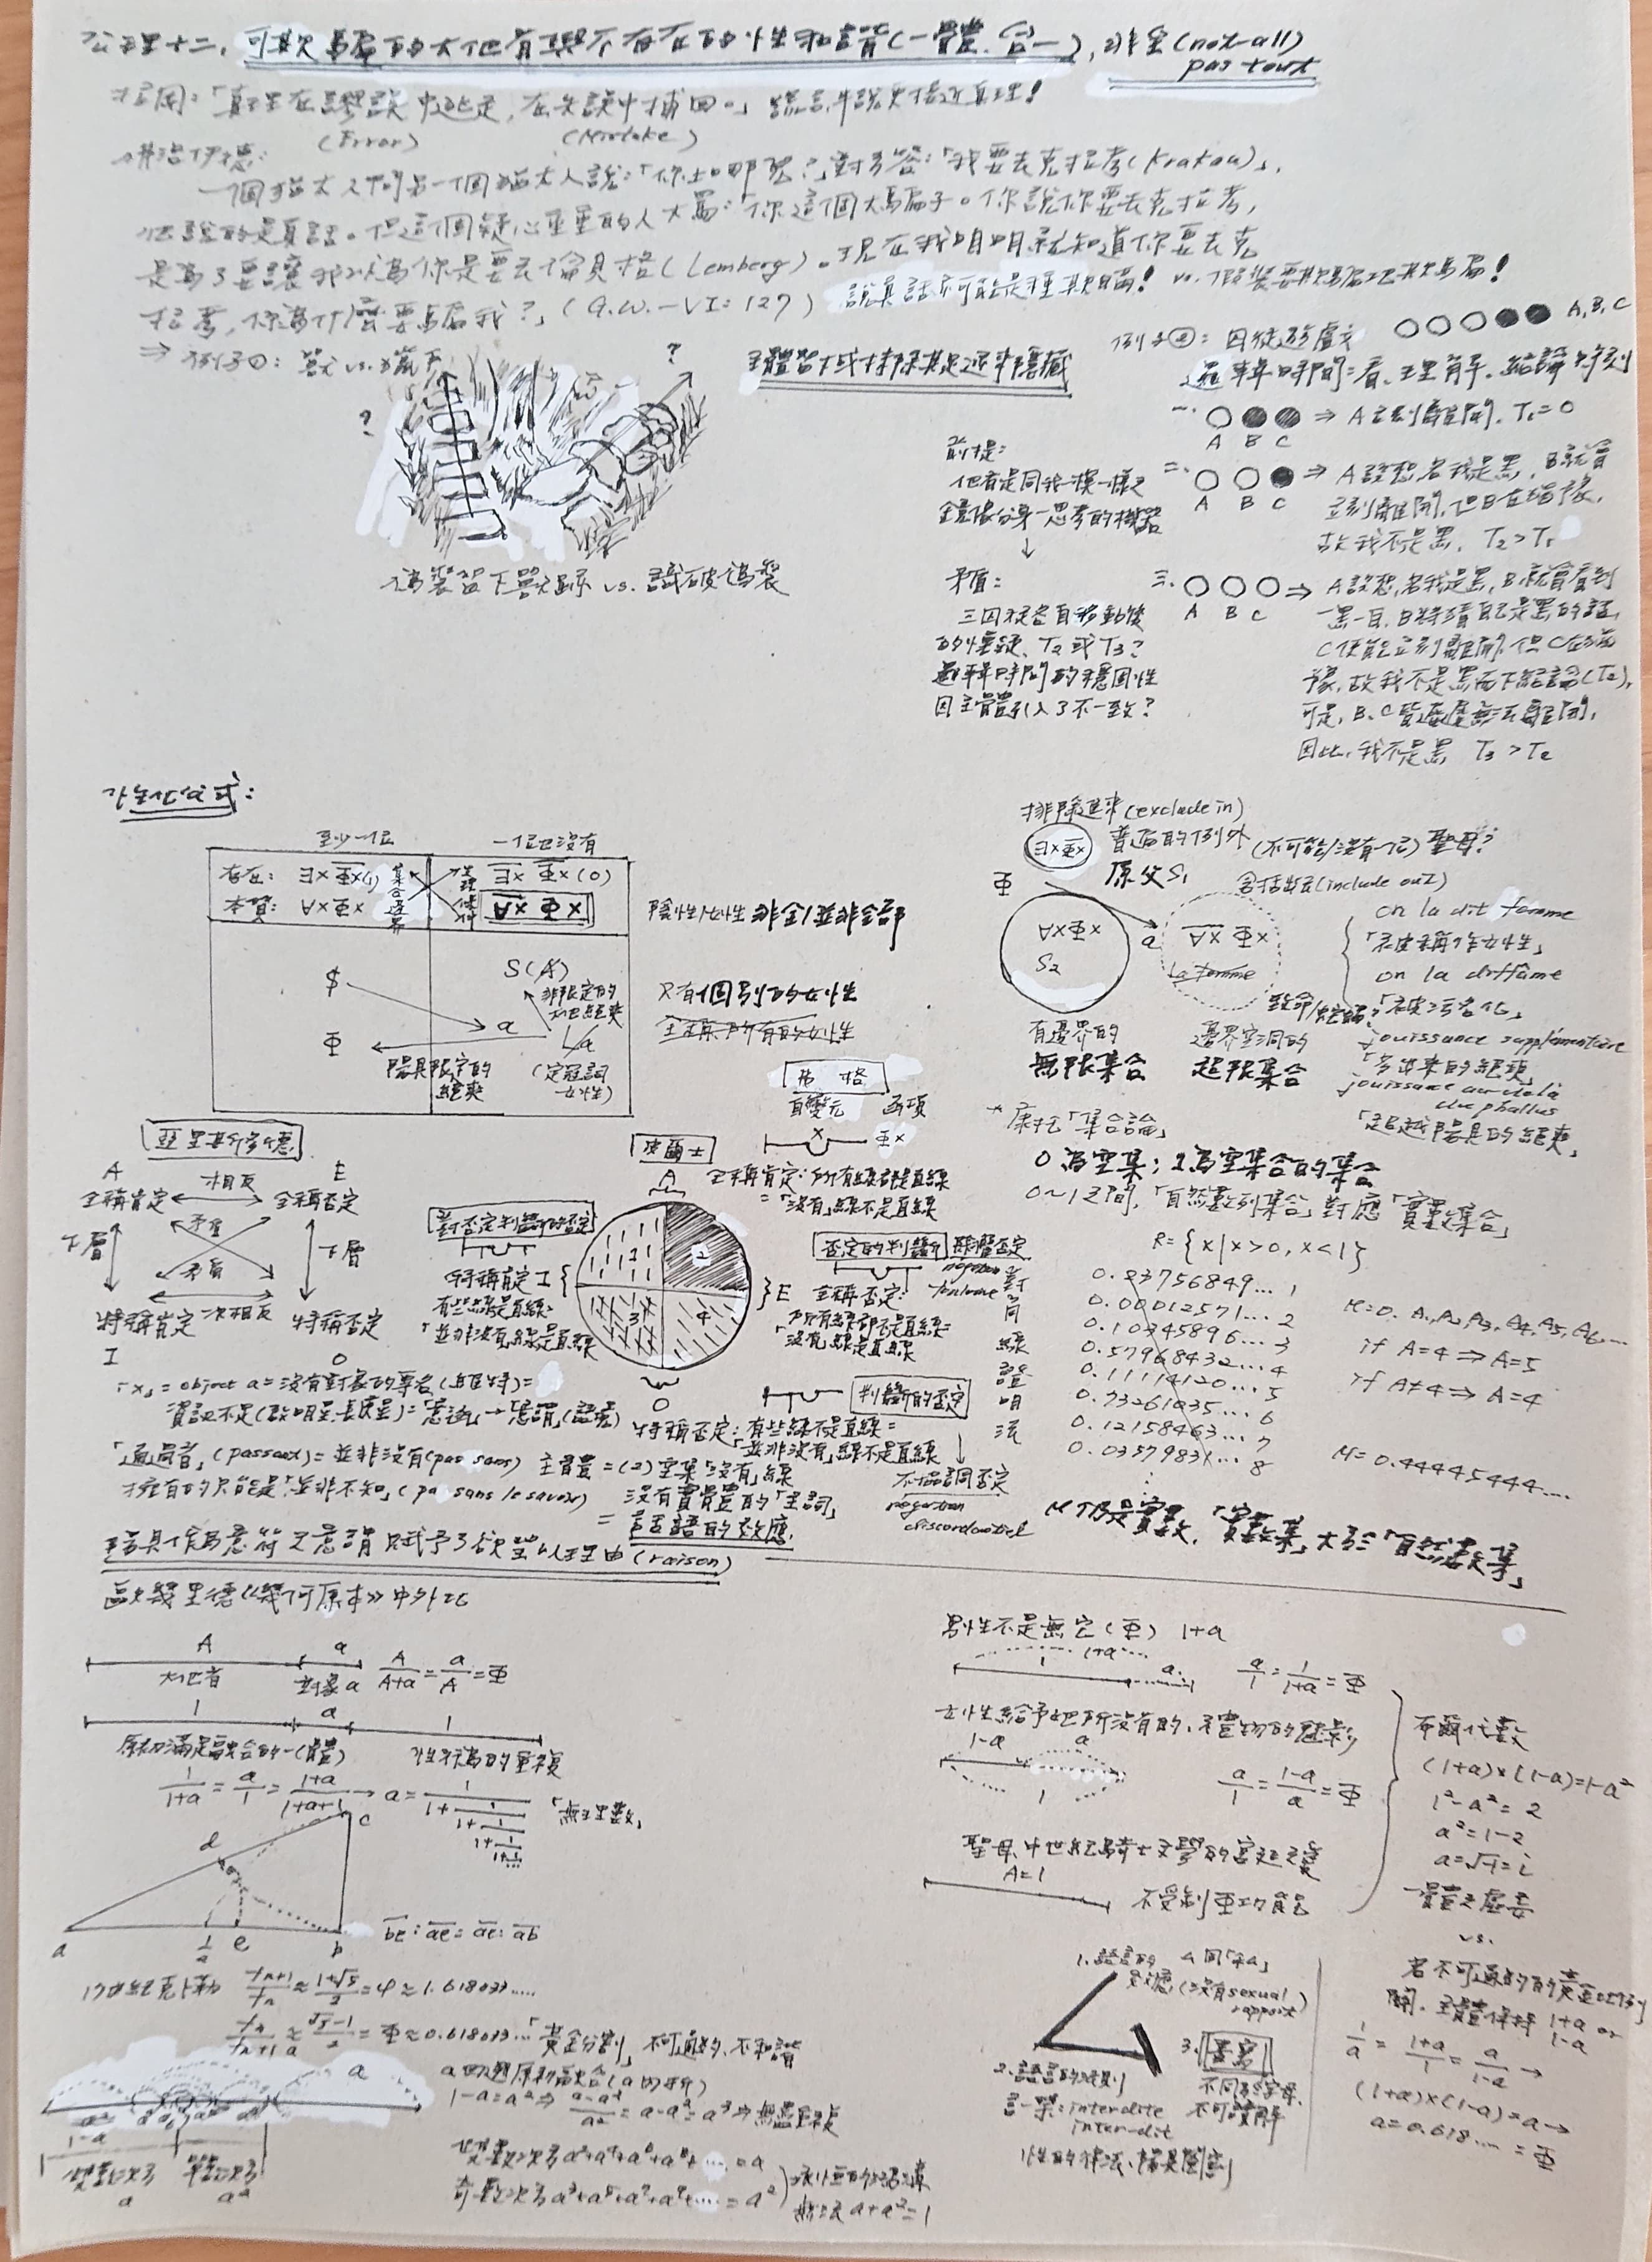 公理十二，可欺騙的大他者與不存在的性和諧(一體、合一)，非全(not-all)
pas tout
拉岡：「真理在謬誤中逃走，在失誤中捕回。」謊言比說更接近真理！
(Error) (Mistake)
佛洛伊德：
一個猶太人問另一個猶太人說：「你上哪兒？」對方答：「我要去克拉考(Krakau)」，
他說的是真話。但這個疑心重重的人大罵：「你這個大騙子。你說你要去克拉考，
是為了要讓我以為你是要去倫貝格(Lemberg)。現在我明明就知道你要去克
拉考，你為什麼要騙我？」(G.W.-VI：127) 說真話亦可能是種欺瞞！ vs. 假裝要欺騙地欺騙！
⇒ 例子①：獸 vs. 獵人
? ?
偽裝留下獸跡 vs. 識破偽裝
主體留下或抹除其足迹來隱藏
例子②：囚徒的顧慮 ○○○●● A, B, C
邏輯時間：看、理解、結論時刻
一. ○●● ⇒ A立刻離開. T₁=0
A B C
二. ○○● ⇒ A設想若我是黑，B就會
A B C
立刻離開，但B在猶豫，
故我不是黑. T₂>T₁
三. ○○○ ⇒ A設想，若我是黑，B就會看到
A B C
一黑一白，B將猜自己是黑的話，
C便能立刻離開，但C在猶
豫，故我不是黑而下結論(T₂)，
可是，B、C皆猶豫無法離開，
因此，我不是黑 T₃>T₂
前提：
他者是同我一模一樣之
鏡像分身—思考的機器
↓
矛盾：
三囚徒各自移動後
的懷疑，T₂或T₃？
邏輯時間的穩固性
因主體引入了不一致？
性化公式：
至少一位 一位也沒有
存在：∃x Φ̅x(1) ∃̅x Φ̅x(0)
本質：∀x Φx ∀̅x Φx
集合邊界
$ S(Ⱥ)
非限定的
大他絕爽
a
Φ La
陽具限定的
絕爽
(定冠詞
女性)
陰性/女性非全/並非全部
只有個別的女性
全稱所有的女性
排除進來(exclude in)
∃x Φ̅x 普遍的例外 (不可能/沒有一位) 聖母？
Φ 原父S₁ 含括出去(include out)
∀xΦx
S₂
a
∀̅x Φx
La femme
on la dit femme
「被稱作女性」
on la diffâme
「被污名化」
jouissance supplémentaire
「多出來的絕爽」
jouissance au-delà
du phallus
「超越陽具的絕爽」
有邊界的 邊界空洞的
無限集合 超限集合
亞里斯多德
A E
全稱肯定 相反 全稱否定
下層 矛盾 下層
矛盾
特稱肯定 次相反 特稱否定
I O
弗格
自變元 函項
x Φx
皮爾士
A
全稱肯定：所有線都是直線
=「沒有」線不是直線
對否定判斷的否定
特稱肯定I
有些線是直線=
「並非沒有」線是直線
1 2 3 4
E
否定的判斷 排除否定
negation
forclusive
全稱否定：
所有線都不是直線=
「沒有」線是直線
O 判斷的否定
特稱否定：有些線不是直線=
「並非沒有」線不是直線
不協調否定
negation
discordantiel
「x」=object a=沒有對象的專名(維特)=
「通過者」(passant)=並非沒有(pas sans) 主體=(2)空集「沒有」線
擁有的只能是「並非不知」(pas sans le savoir) 沒有實體的「主詞」
=言語的效應.
陽具作為意符之意謂 賦予了欲望以理由(raison)
*康托「集合論」
0為空集；1為空集合的集合
0~1之間，「自然數列集合」對應「實數集合」
R={x|x>0, x<1}
對角線證明法
0.23756849...1
0.00012571...2
0.10345896...3
0.57968432...4
0.11114120...5
0.73261035...6
0.12158463...7
0.03579831...8
⋮
M=0. A₁,A₂,A₃,A₄,A₅,A₆...
if A=4⇒A=5
if A≠4⇒A=4
M=0.44445444....
M仍是實數，「實數集」大於「自然數集」
歐幾里德《幾何原本》中外比
A a
大他者 對象a
A/(A+a)=a/A=Φ
1 a 1
原初滿足融合的一(體) 性行為的重複
1/(1+a)=a/1=(1+a)/(1+a+1)→a=1/(1+1/(1+1/(1+1/(1+... 「無理數」
c
d
a 1/2 e b
be:ae=ae:ab
17世紀克卜勒 fn+1/fn≈(1+√5)/2=φ≈1.618033.....
fn/fn+1≈(√5-1)/2=Φ≈0.618033...「黃金分割」不可通約、不和諧
a
a²
1-a
雙數次方 單數次方
a a²
a回返原初融合(a的折)
1-a=a²⇒(a-a²)/a²=a-a²=a³⇒無盡重複
雙數次方a²+a⁴+a⁶+a⁸+.....=a
奇數次方a³+a⁵+a⁷+a⁹+.....=a²
無法a+a²=1
男性不是無它(Φ) 1+a
1+a
1 a
a/1=1/(1+a)=Φ
女性給予她所沒有的、禮物的魅影
1-a a
1
a/1=(1-a)/a=Φ
聖母、中世紀騎士文學的宮廷之愛
A=1
不受制Φ功能
布爾代數
(1+a)×(1-a)=1-a²
1²-a²=2
a²=1-2
a=√-1=i
一體之虛妄
vs.
若不可通約的黃金比例
關，主體保持 1+a or
1-a
1/a=(1+a)/1=a/(1-a)→
(1+a)×(1-a)=a→
a=0.618....=Φ
1.語言的效應(沒有sexual
rapport)
2.語言的法則
言—禁：interdite
inter-dit
性的律法、陽具圖騰
3.書寫
不同於字母.
不可設解